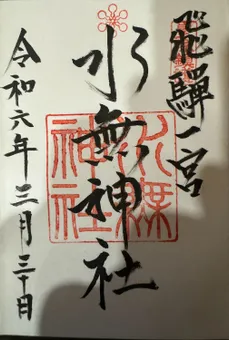 飛騨一宮
水無神社
水無神社
令和六年三月三十日